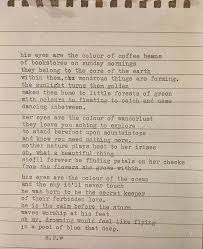 his eyes are the colour of coffee beans
of bookstores on sunday mornings
they belong to the core of the earth
within them, wondrous things are forming.
the sunlight turns them golden
makes them home to little forests of green
with colours to and name
dancing inbetween.
her eyes are the colour of wanderlust
they leave you aching to explore
to stand barefoot upon mountaintops
and know you need nothing more.
mother nature plays in her irises
oh, what a beautiful thing
still forever be finding petals on her cheeks
from the flowers she grows within.
his eyes are the colour of the ocean
and the sky it'll never touch
he was born to be the secret keeper
of their forbidden love.
he is the calm before the storm
waves worship at his feet
oh my, drowning would feel like flying
in a pool of blue that deep.